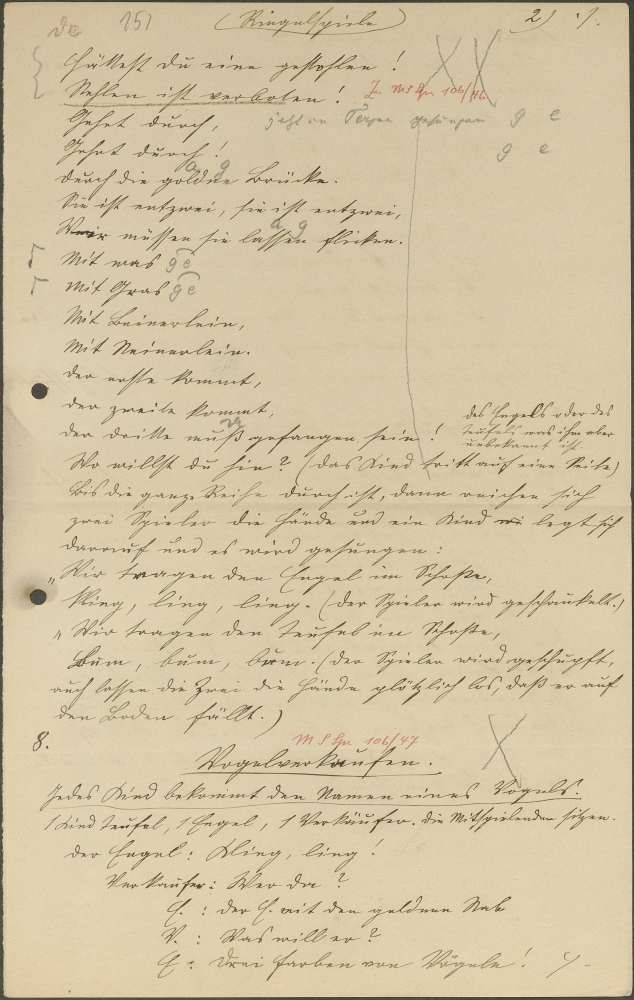 151 (Ringelspiele) 2) 7.
Hättest du eine gestohlen!
Stehlen ist verboten! Z. MS Spr 106/46
Gehet durch, g e
Gehet durch! g e
durch die goldne Brücke.
Sie ist entzwei, sie ist entzwei,
Wir müssen sie lassen flicken.
Mit was ge
Mit Gras ge
Mit Beinerlein,
Mit Steinerlein.
der erste kommt,
der zweite kommt,
der dritte muß gefangen sein!
des Engels oder des
Teufels was ihm aber
unbekannt ist.
Wo willst du hin? (das Kind tritt auf eine Seite)
Bis die ganze Reihe durch ist, dann reichen sich
zwei Spieler die Hände und ein Kind legt sich
darauf und es wird gesungen:
„Wir tragen den Engel im Schoße,
Kling, ling, ling. (der Spieler wird geschaukelt.)
„Wir tragen den Teufel im Schoße,
Bum, bum, bum. (der Spieler wird geschupft,
auch lassen die Zwei die Hände plötzlich los, daß er auf
den Boden fällt.)
8. MS Spr 106/47
Vogelverkaufen.
Jedes Kind bekommt den Namen eines Vogels.
1 Kind Teufel, 1 Engel, 1 Verkäufer. die Mitspielenden sitzen.
der Engel: Kling, ling!
Verkäufer: Wer da?
E.: der E. mit den goldnen Stab
V.: Was will er?
E.: Drei Farben von Vögeln!